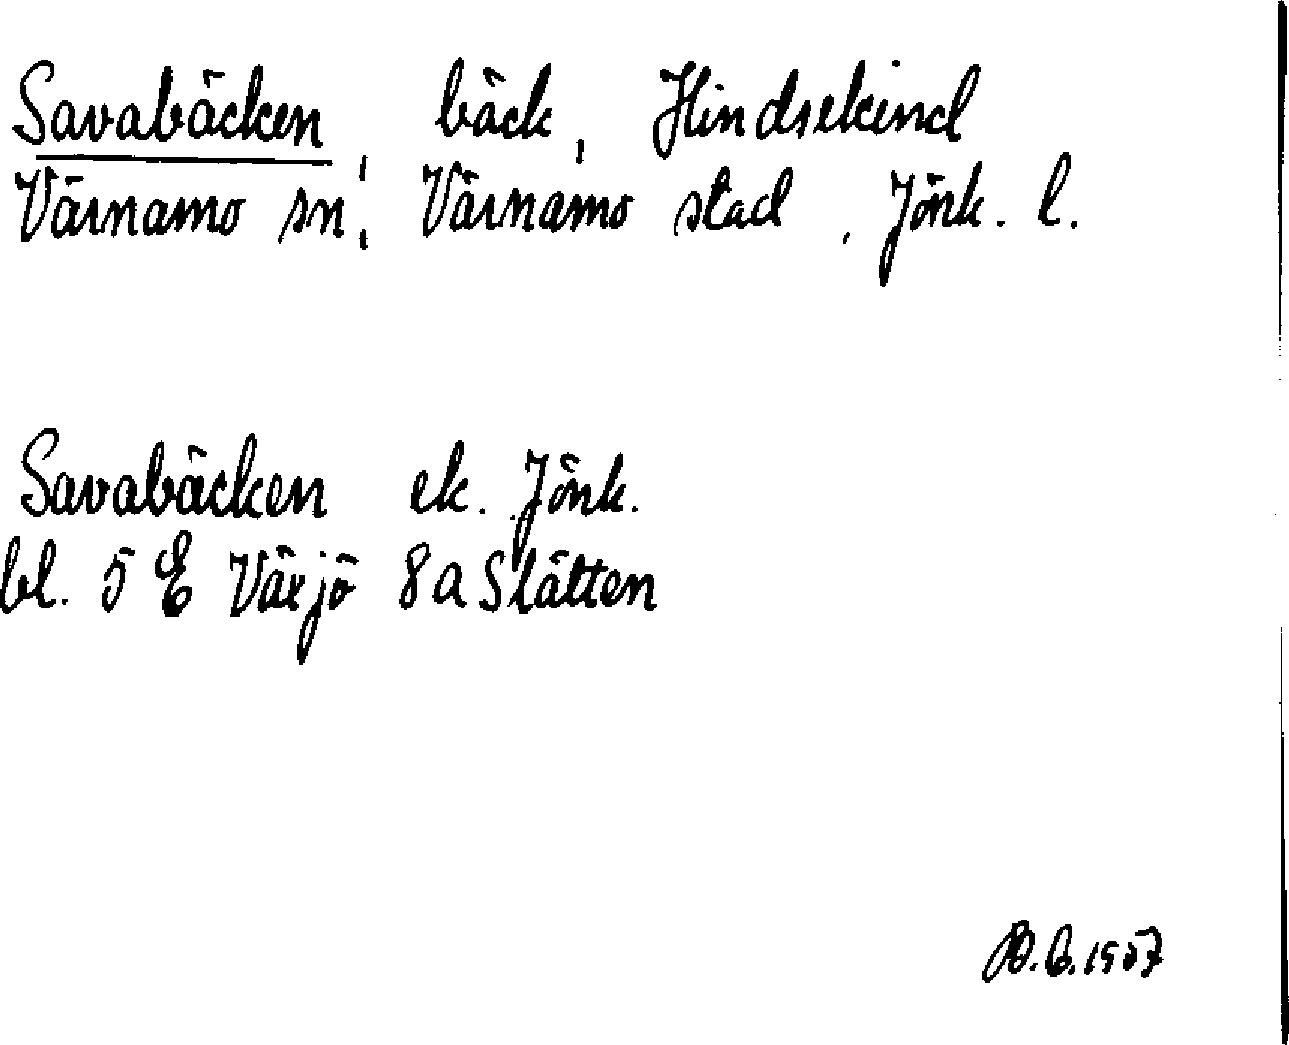 Savabäcken bäck, Hindsekind
Värnamo sn; Värnamo stad, Jönk. l.
Savabäcken ek. Jönk.
bl. 5 E Växjö 8 a Slätten
B.B. 1957